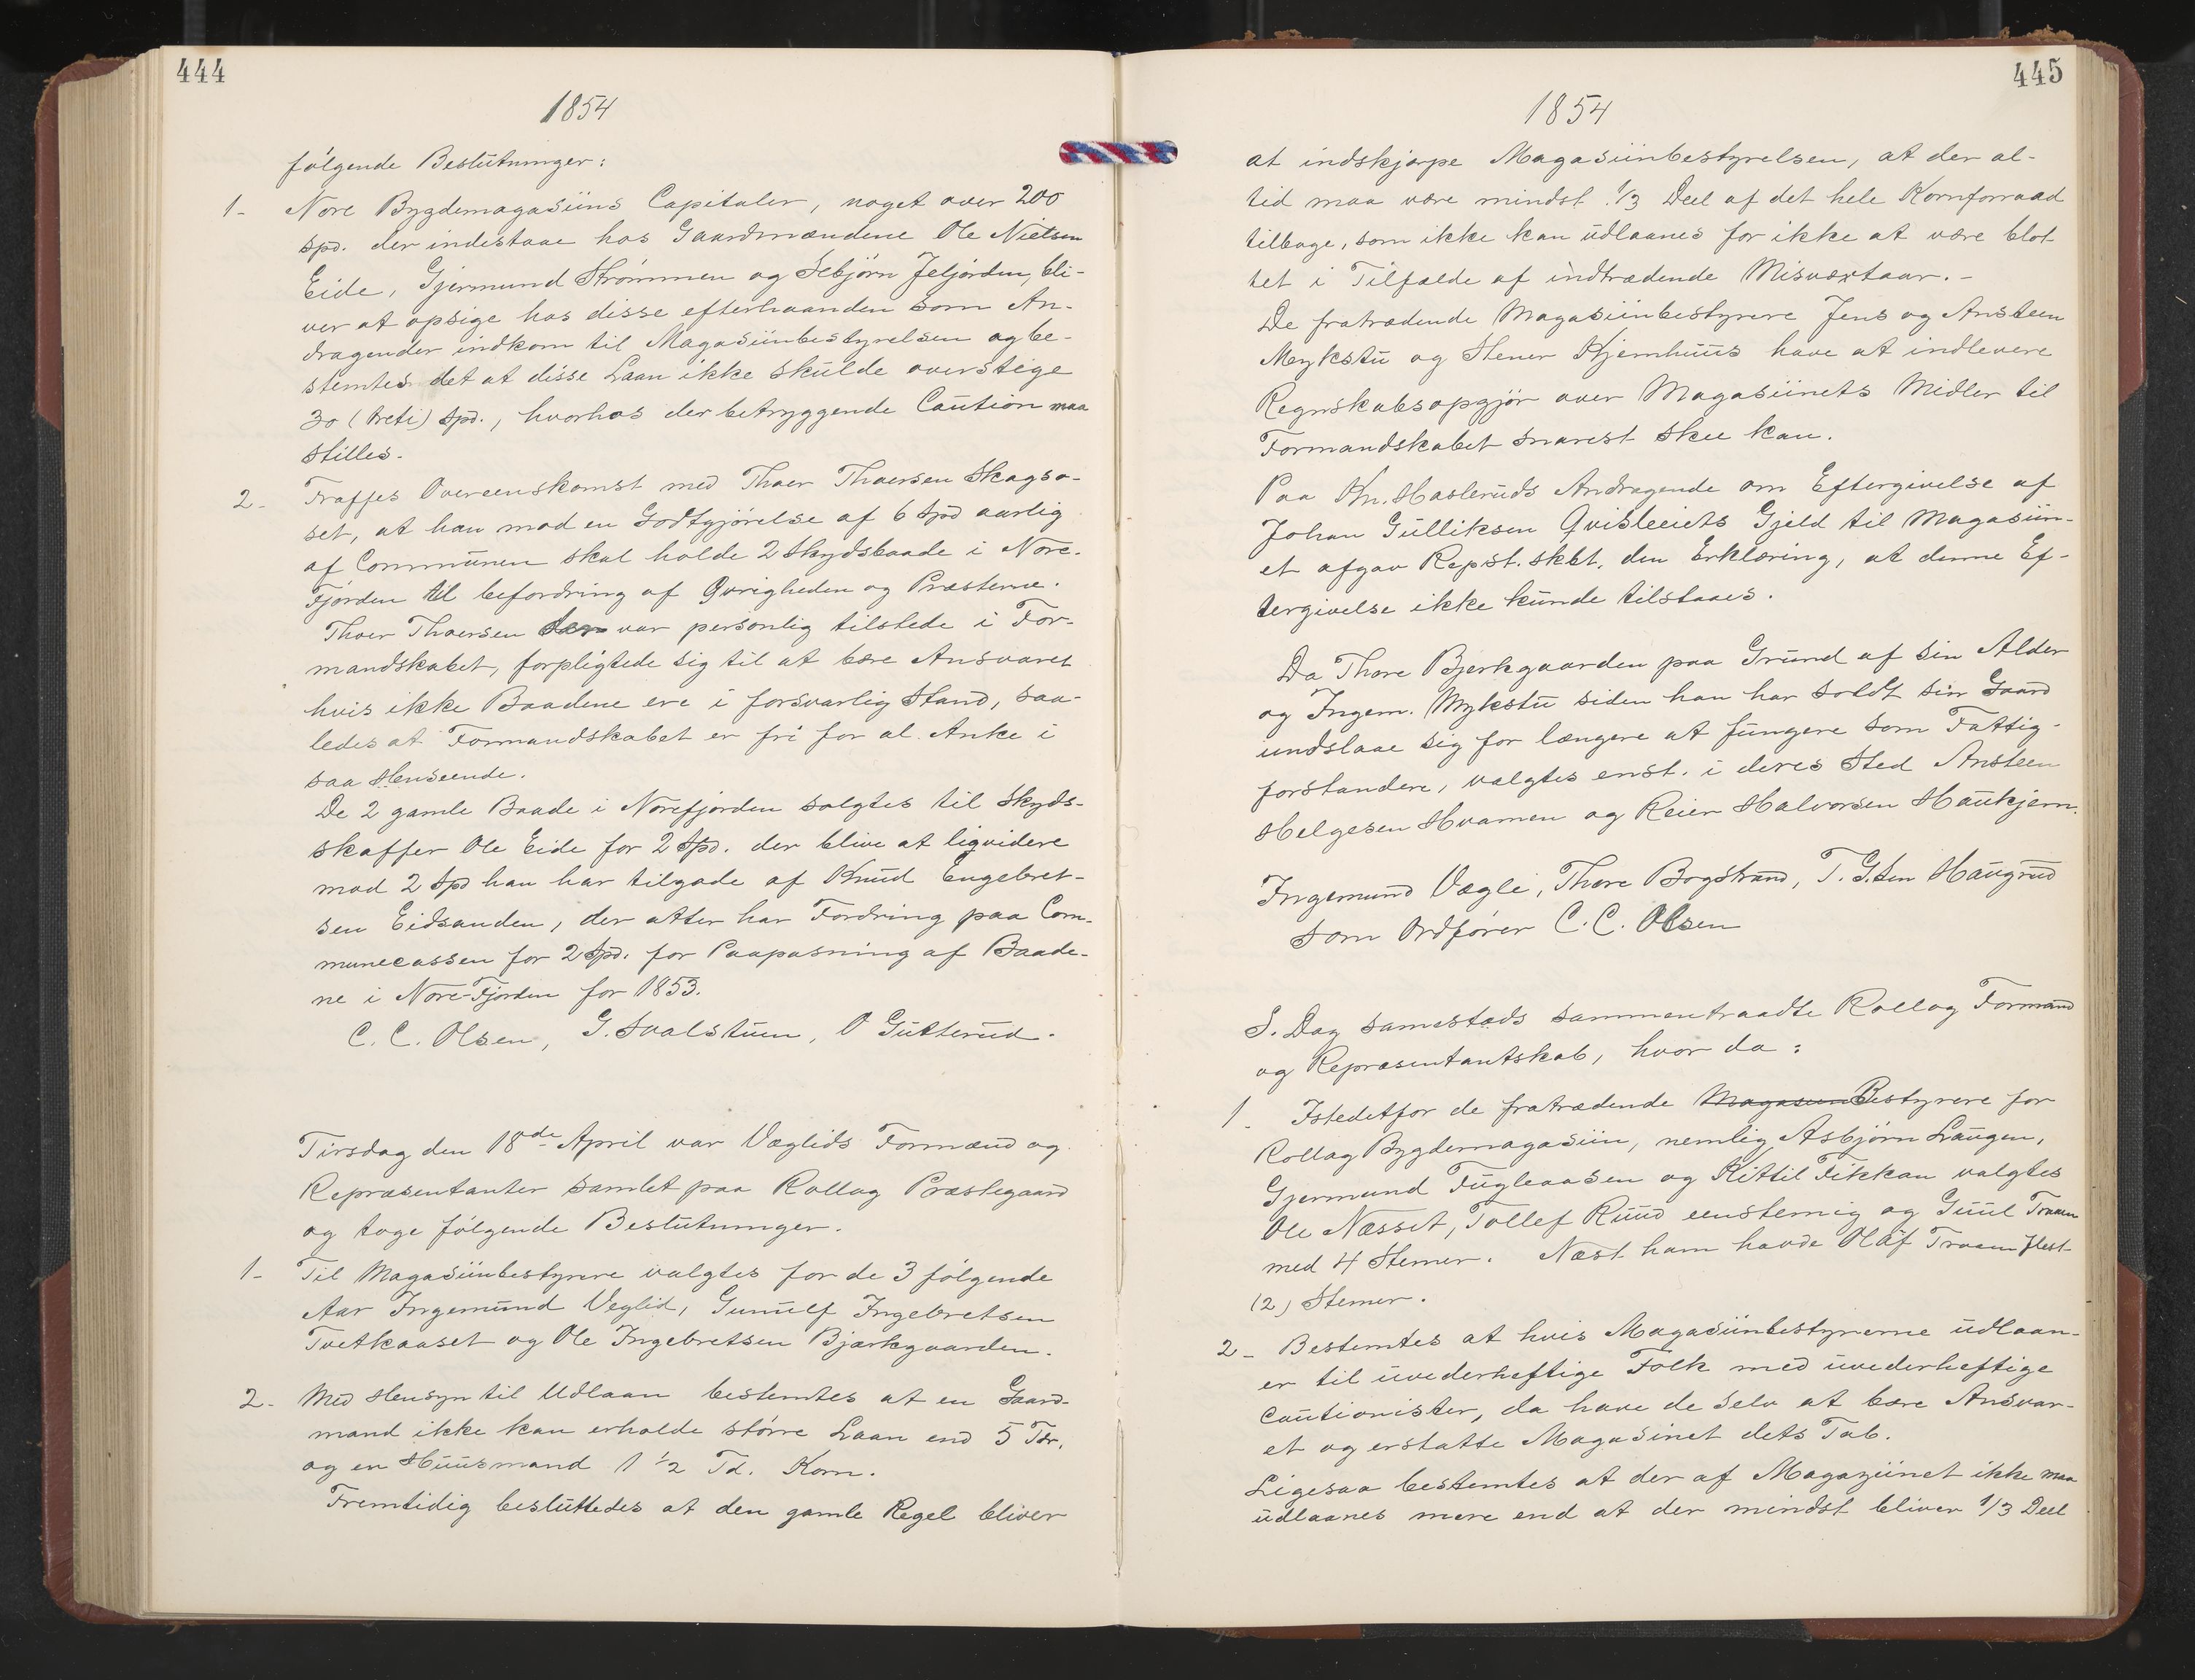 444
1854
følgende Beslutninger:
1- Nore Bygdemagasiins Capitaler, noget over 200
Spd. der indestaae hos Gaardmændene Ole Nielsen
Eide, Gjermund Strømmen og Sebjørn Jeljorden, bli-
ver at opsige hos disse efterhaanden som An-
dragender indkom til Magasiinbestyrelsen og be-
stemtes det at disse Laan ikke skulde overstige
30 (treti) Spd., hvorhos der betryggende Caution maa
stilles.
2- Traffes Overeenskomst med Thoer Thoersen Skagso-
set, at han mod en Godtgjørelse af 6 Spd aarlig
af Communen skal holde 2 Skydsbaade i Nore-
Fjorden til befordring af Øvrigheden og Præsterne.
Thoer Thoersen der var personlig tilstede i For-
mandskabet, forpligtede sig til at bære Ansvaret
hvis ikke Baadene ere i forsvarlig Stand, saa-
ledes at Formandskabet er fri for al Anke i
saa Henseende.
De 2 gamle Baade i Norefjorden solgtes til Skyds-
skaffer Ole Eide for 2 Spd. der blive at liqvidere
mod 2 Spd han har tilgode af Knud Engebret-
sen Eidsanden, der atter har Fordring paa Com-
munecassen for 2 Spd. for Paapasning af Baade-
ne i Nore-Fjorden for 1853.
C. C. Olsen, G. Svalstuen, O Gutterud.
Tirsdag den 18de April var Væglids Formænd og
Repræsentanter samlet paa Rollag Præstegaard
og toge følgende Beslutninger.
1- Til Magasiinbestyrere valgtes for de 3 følgende
Aar Ingemund Veglid, Gunulf Ingebretsen
Tvetkaaset og Ole Ingebretsen Bjærkgaarden.
2- Med Hensyn til Udlaan bestemtes at en Gaard-
mand ikke kan erholde større Laan end 5 Tdr.
og en Huusmand 1 1/2 Td. Korn.
Fremtidig besluttedes at den gamle Regel bliver
445
1854
at indskjærpe Magasiinbestyrelsen, at der al-
tid maa være mindst 1/3 Deel af det hele Kornforraad
tilbage, som ikke kan udlaanes for ikke at være blot
tet i Tilfælde af indtrædende Misvæxtaar.-
De fratrædende Magasiinbestyrere Jens og Ansteen
Mykstu og Stener Kjemhuus have at indlevere
Regnskabsopgjør over Magasiinets Midler til
Formandskabet snarest skee kan.
Paa Kn. Hasleruds Andragende om Eftergivelse af
Johan Gulliksen Qvisleeiets Gjeld til Magasiin-
et afgav Repst. skbt. den Erklæring, at denne Ef-
tergivelse ikke kunde tilstaaes.
Da Thore Bjerkgaarden paa Grund af sin Alder
og Ingem. Mykstu siden han har soldt sin Gaard
undslaae sig for længere at fungere som Fattig-
forstandere, valgtes enst. i deres Sted Ansteen
Helgesen Hvamen og Reier Halvorsen Haukjern.
Ingemund Vægli, Thore Bogstrand, T. G.sen Haugrud
som Ordfører C. C. Olsen
S. Dag samestads sammentraadte Rollag Formand
og Repræsentantskab, hvor da:
1- Istedetfor de fratrædende Magasiin Bestyrere for
Rollag Bygdemagasiin, nemlig Asbjørn Laugen,
Gjermund Fugleaasen og Kittil Fikkan valgtes
Ole Næsset, Tollef Ruud eenstemig og Guul Traaen
med 4 Stemer. Næst ham havde Olaf Traaen flest
(2) Stemer.
2- Bestemtes at hvis Magasiinbestyrerne udlaan-
er til uvederheftige Folk med uvederheftige
Cautionister, da have de selv at bære Ansvar-
et og erstatte Magasinet dets Tab.
Ligesaa bestemtes at der af Magaziinet ikke maa
udlaanes mere end at der mindst bliver 1/3 Deel